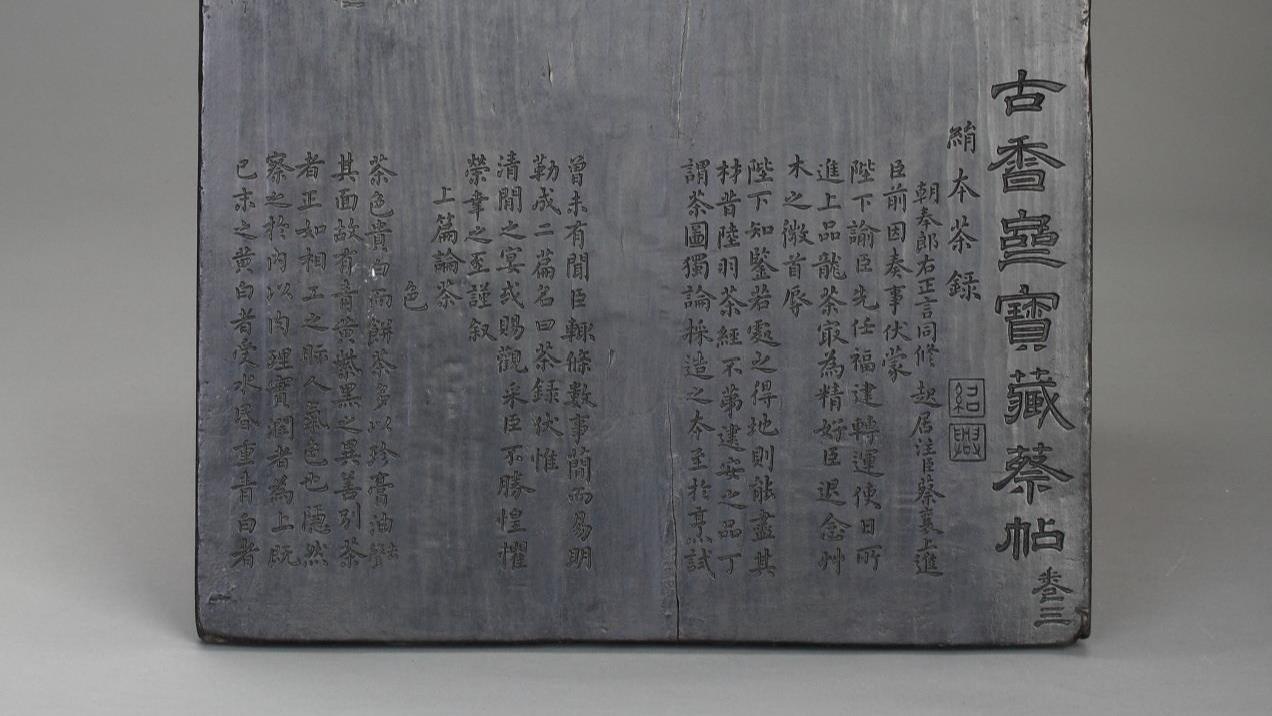 古香齋寶藏蔡帖
卷三
絹本茶錄
紹興
朝奉郎右正言同修起居注臣蔡襄上進
臣前因奏事伏蒙
陛下諭臣先任福建轉運使日所
進上品龍茶冣為精好臣退念艸
木之微首辱
陛下知鑒若處之得地則能盡其
材昔陸羽茶經不苐建安之品丁
謂茶圖獨論採造之本至於烹試
曾未有聞臣輙條數事簡而易明
勒成二篇名曰茶録伏惟
清閒之宴或賜觀采臣不勝惶懼
榮幸之至謹叙
上篇論茶
色
茶色貴白而餅茶多以珍膏油去聲
其面故有青黄紫黑之異善別茶
者正如相工之眎人氣色也隱然
察之於內以肉理實潤者為上既
已末之黄白者受水昏重青白者